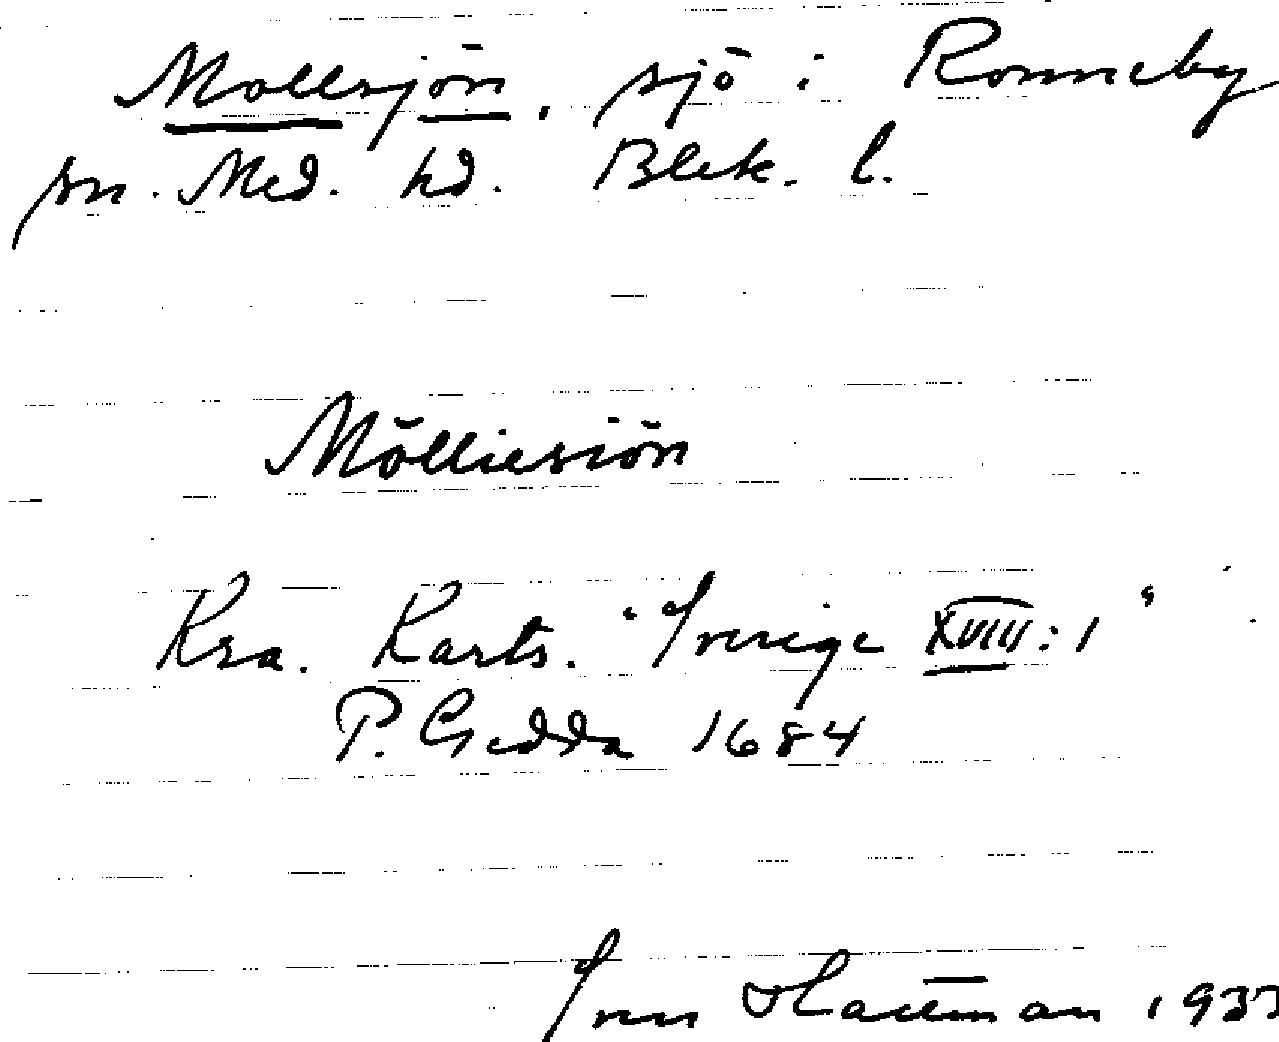 Mollsjön, sjö i Ronneby
sn. Med. hd. Blek. l.
Mölliesiön
Kra. Karts. "Sverige XVIII: 1"
P. Gedda 1684
1933